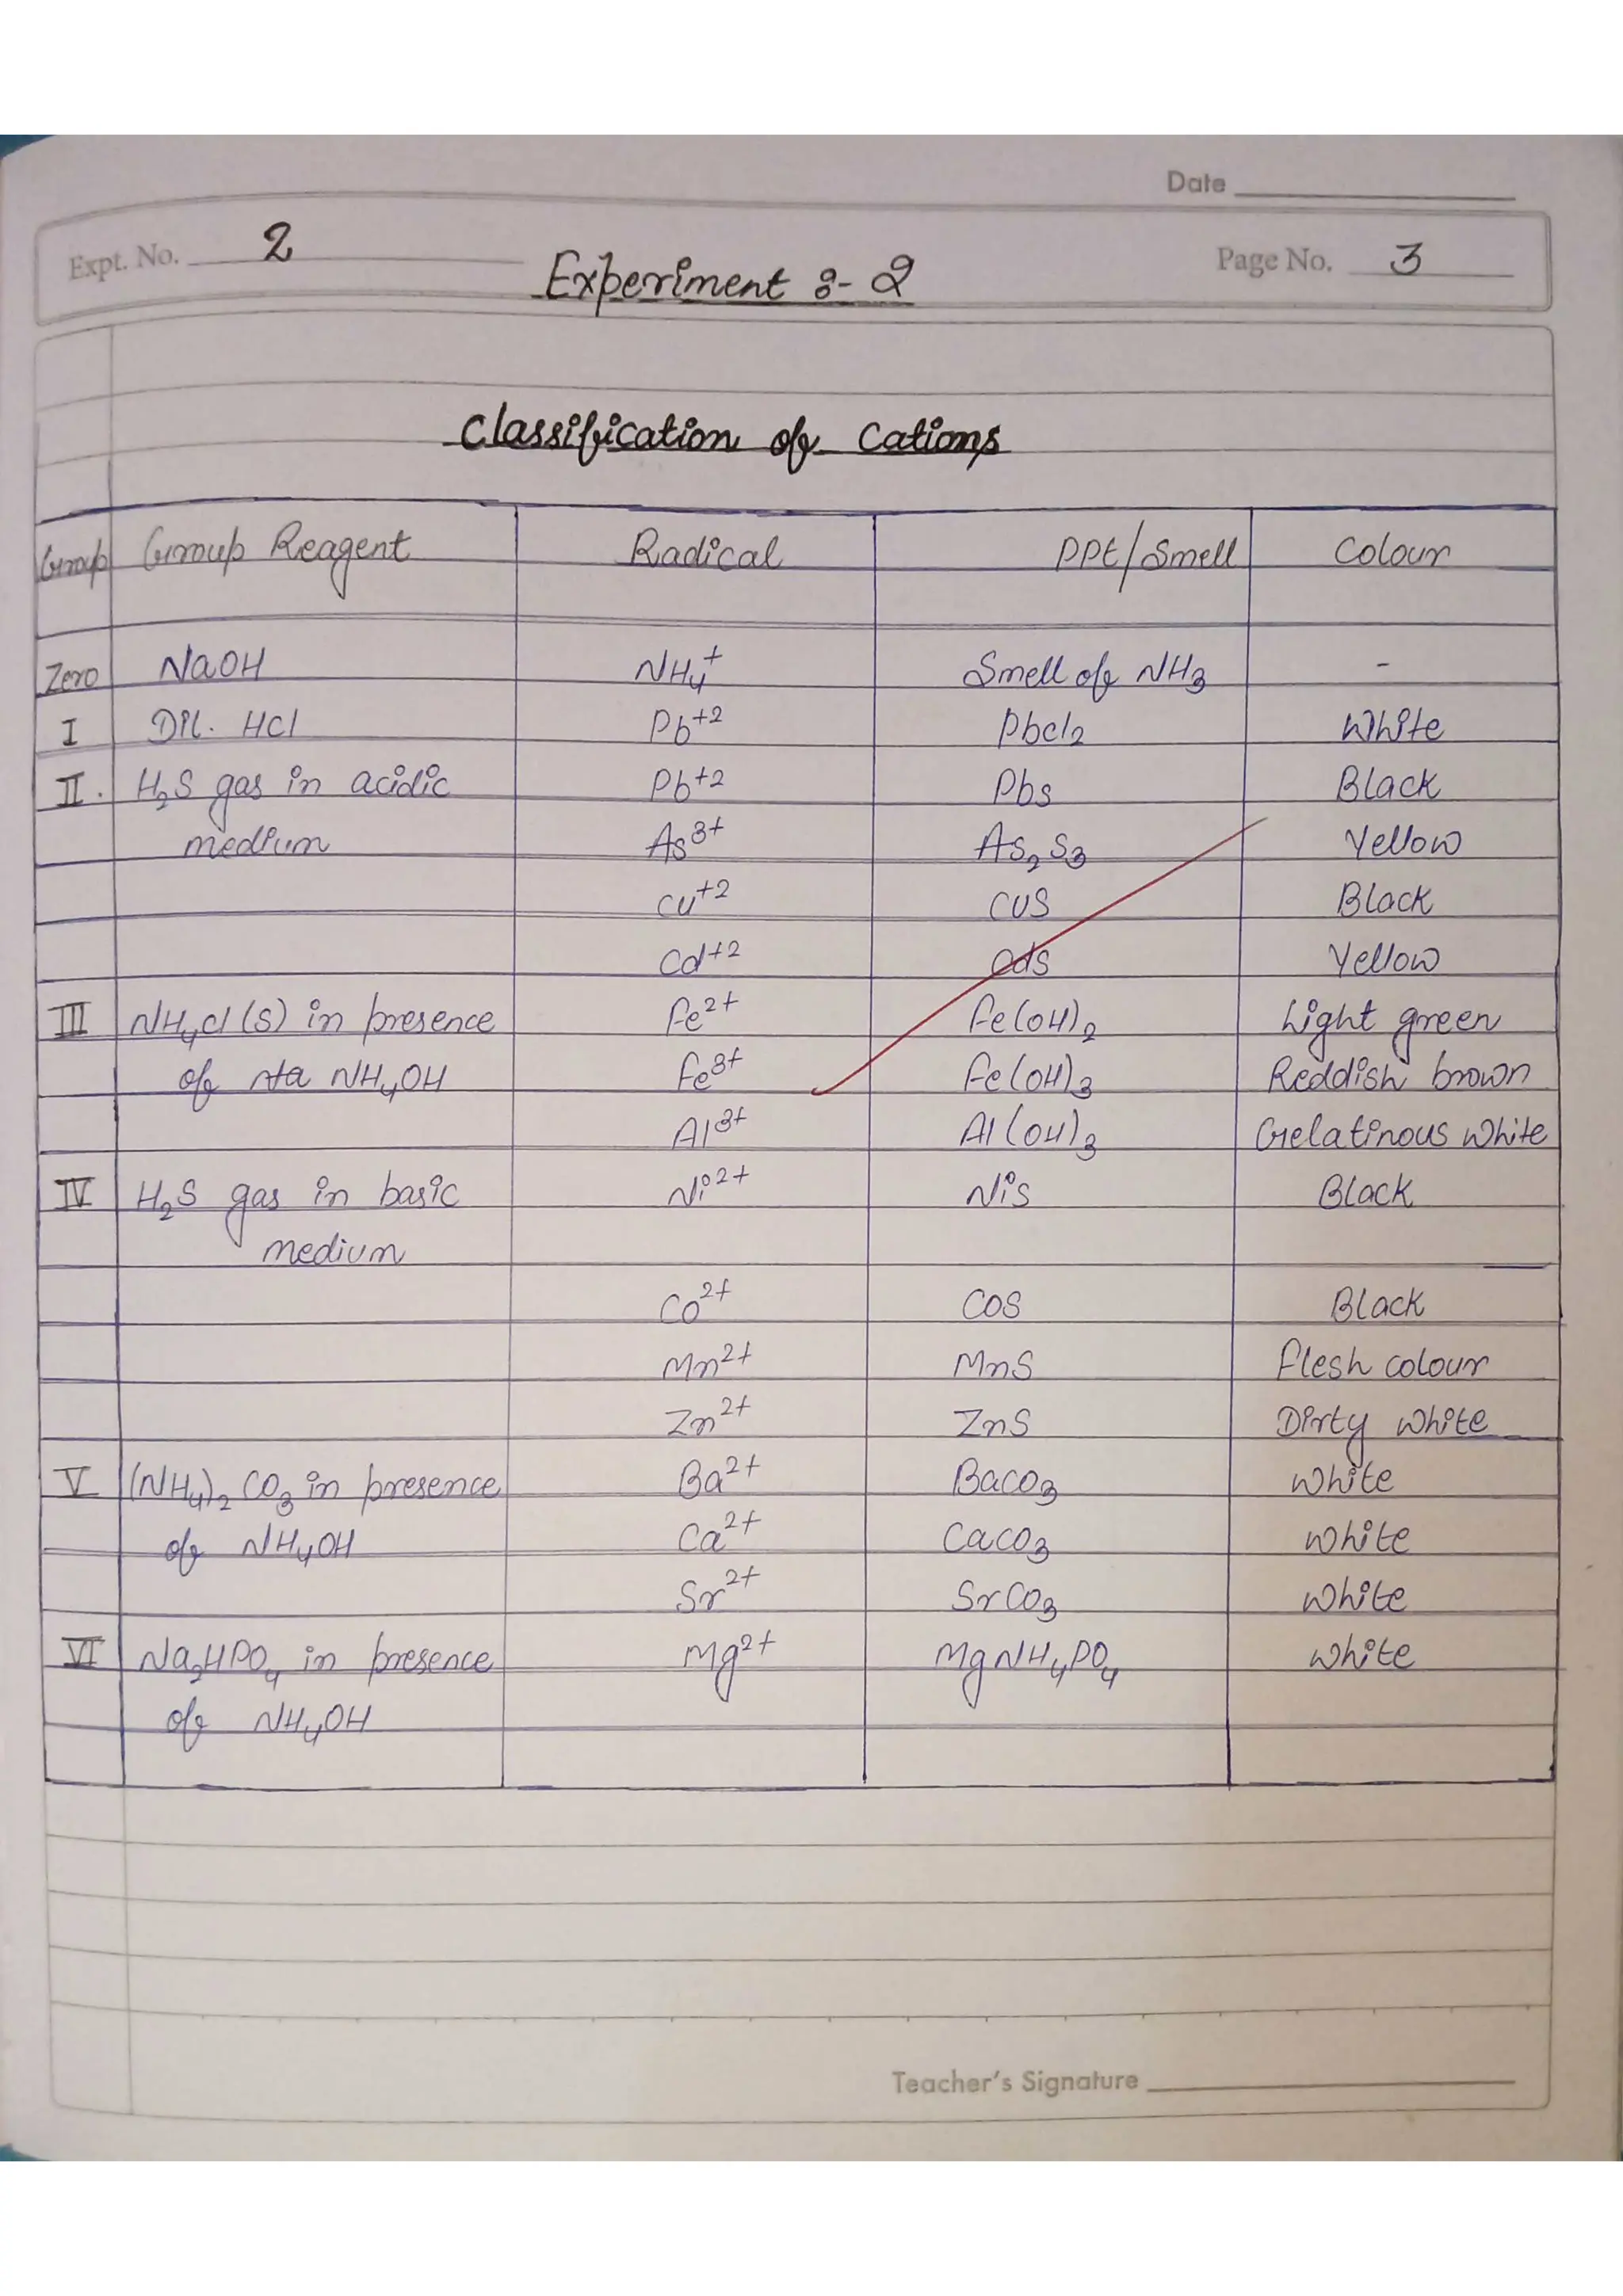 Date
Expt. No. 2
Experiment :- 2
Page No. 3
Classification of Cations
Group Group Reagent Radical PPt/Smell Colour
Zero NaOH NH₄⁺ Smell of NH₃ -
I Dil. HCl Pb⁺² Pbcl₂ White
II. H₂S gas in acidic Pb⁺² Pbs Black
medium As³⁺ As₂S₃ Yellow
Cu⁺² CuS Black
Cd⁺² Cds Yellow
III NH₄cl(s) in presence Fe²⁺ Fe(OH)₂ Light green
of NH₄OH Fe³⁺ Fe(OH)₃ Reddish brown
Al³⁺ Al(OH)₃ Gelatinous White
IV H₂S gas in basic Ni²⁺ Nis Black
medium
Co²⁺ COS Black
Mn²⁺ MnS Flesh colour
Zn²⁺ ZnS Dirty White
V (NH₄)₂CO₃ in presence Ba²⁺ BaCO₃ White
of NH₄OH Ca²⁺ CaCO₃ White
Sr²⁺ SrCO₃ White
VI Na₂HPO₄ in presence Mg²⁺ MgNH₄PO₄ White
of NH₄OH
Teacher's Signature